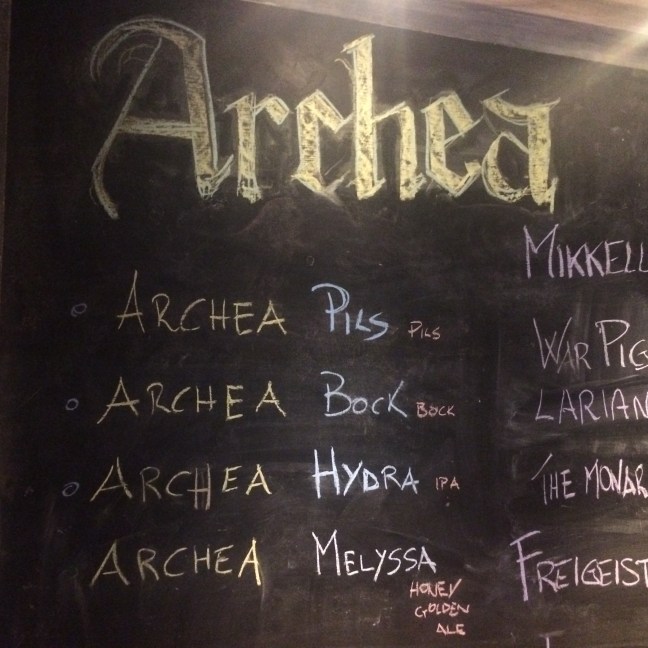 Archea
ARCHEA PILS PILS
ARCHEA BOCK BOCK
ARCHEA HYDRA IPA
ARCHEA MELYSSA
HONEY
GOLDEN
ALE
MIKKELL
WAR PIG
LARIAN
THE MONAR
FREIGEIST